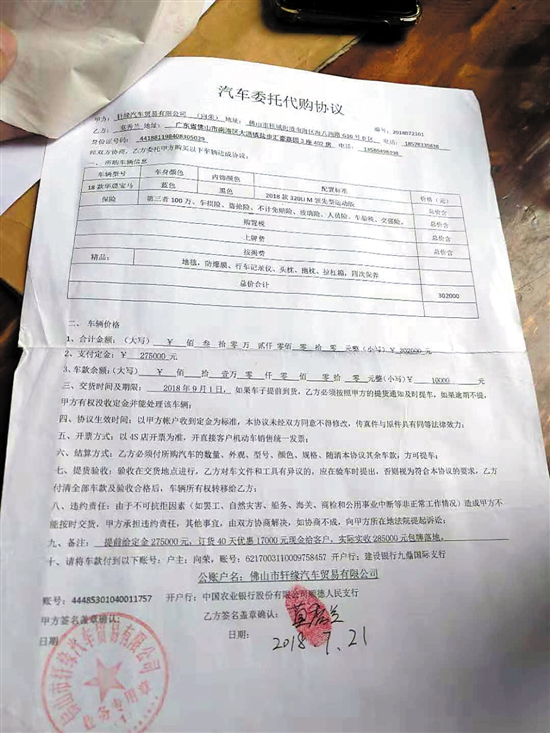 汽车委托代购协议
编号：2018072101
甲方：轩缘汽车贸易有限公司 （向荣） 地址：
乙方： 地址： 广东省佛山市南海区大沥镇盐步汇豪嘉园3座402房 电话：
身份证号码：441881198408305029
经双方协商，乙方委托甲方购买以下车辆达成协议：
一、所购车辆信息
车辆型号 车身颜色 内饰颜色 配置标准 价格（元）
18款华晨宝马 蓝色 黑色 2018款320Li M 领先型运动版 总价含
保险 第三者100万、车损险、盗抢险、不计免赔险、玻璃险、人员险、车船税、交强险。 总价含
购置税 总价含
上牌费 总价含
按揭费 总价含
精品： 地毯，防爆膜、行车记录仪、头枕、抱枕、拉杠箱，四次保养
总价合计 302000
二、车辆价格
1、合计金额：（大写） ￥ 佰 叁 拾零 万 贰仟 零佰 零 拾 零 元整（小写）￥ 302000 元
2、支付定金：￥ 275000 元
3、车款余额：（大写） ￥ 佰 拾壹万 零 仟 零 佰 拾 零 元整（小写）￥ 10000 元
三、交货时间及期限： 2018年9月1日，如果车子提前到货，乙方必须按照甲方的提货通知及时提车，如果逾期不提，
甲方有权没收定金并能处理该车辆；
四、协议生效时间：以甲方帐户收到定金为标准，本协议未经双方同意不得修改，传真件与原件具有同等法律效力；
五、开票方式：以4S店开票为准，开直接客户机动车销售统一发票；
六、结算方式：乙方必须付所购汽车的数量、外观、型号、颜色、规格、随清本协议其余车款，方可提车；
七、提货验收：验收在交货地点进行，乙方对车文件和工具有异议的，应在验车时提出，否则视为符合本协议的要求，乙方
付清全部车款及验收合格后，车辆所有权转移给乙方；
八、违约责任：由于不可抗拒因素（如罢工、自然灾害、船务、海关、商检和公用事业中断等非正常工作情况）造成甲方不
能按时交货，甲方承担违约责任，其他事宜，由双方协商解决，如协商不成，向甲方所在地法院提起诉讼；
九、备注： 提前给定金275000元，订货40天优惠17000元现金给客户，实际实收285000元包牌落地，
十、请将车款付到以下账号：户主：向荣，账号：6217003110009758457 开户行：建设银行九鼎国际支行
公账户名：佛山市轩缘汽车贸易有限公司
账号：44485301040011757 开户行：中国农业银行股份有限公司顺德人民支行
甲方签名盖章确认： 乙方签名盖章确认：
日期 日期： 2018 7.21
佛山市轩缘汽车贸易有限公司
业务专用章
（1）